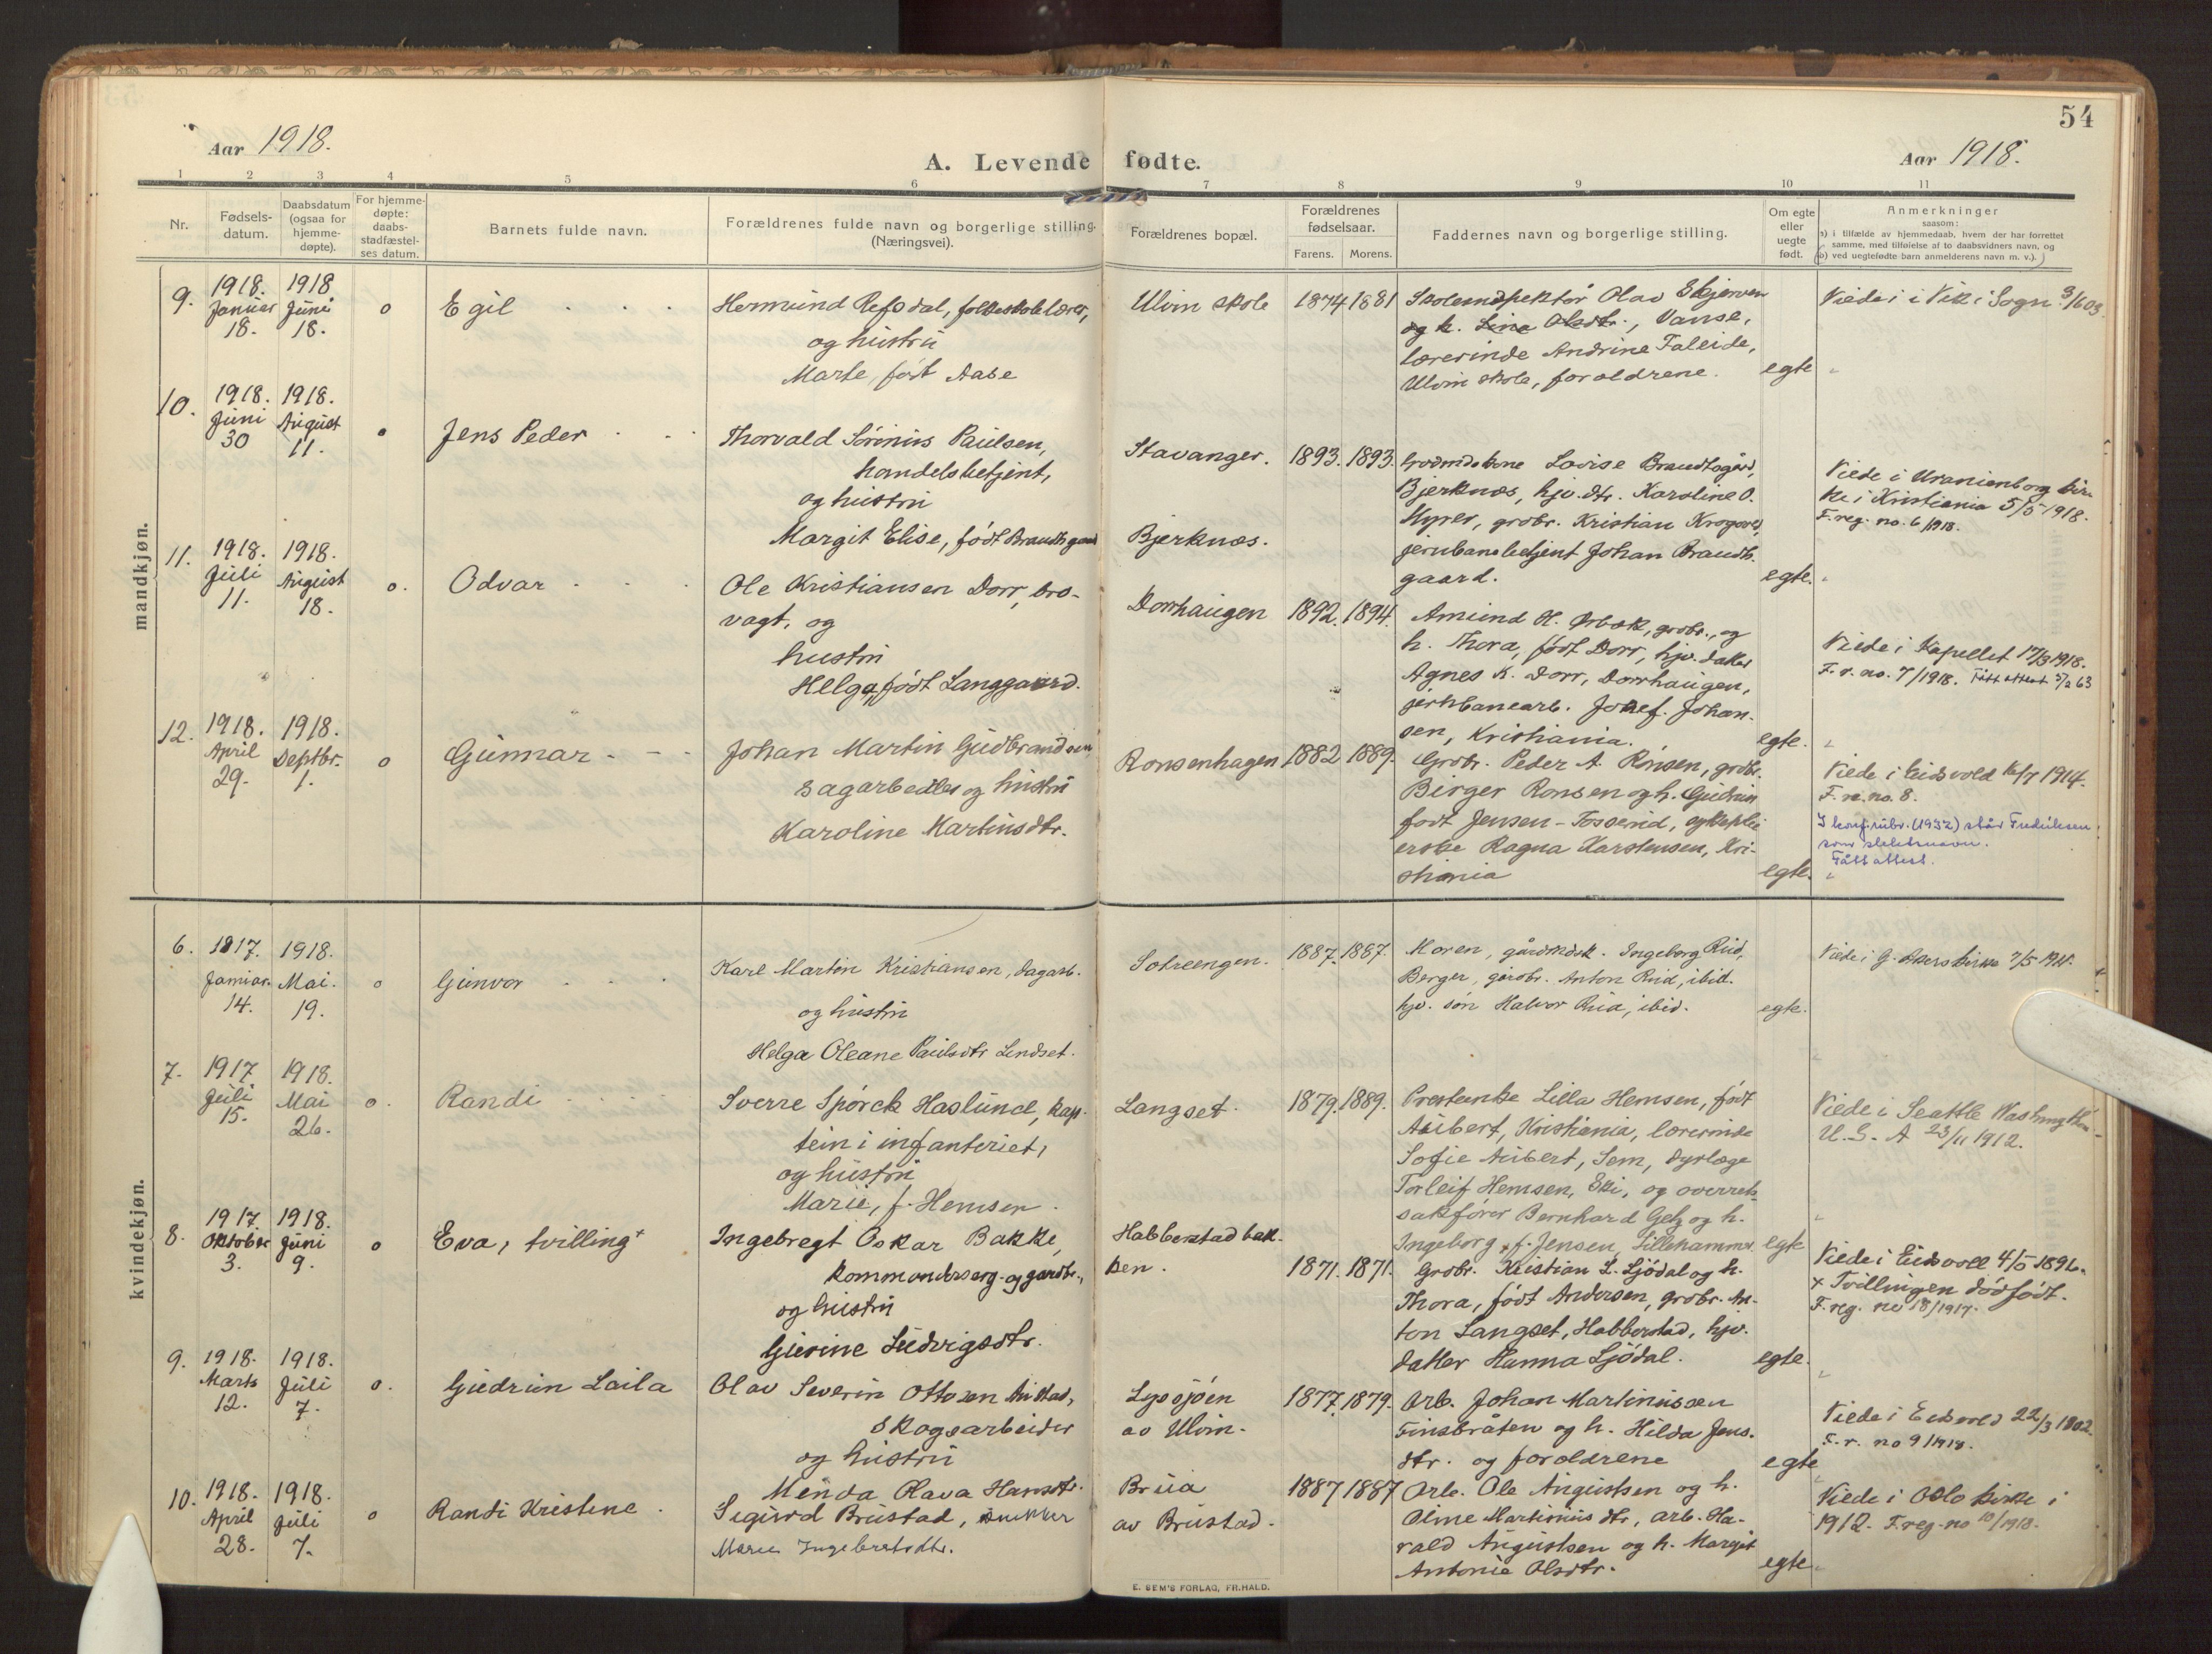 54
Aar 1918.
A. Levende fødte.
Aar 1918.
1 2 3 4 5 6 7 8 9 10 11
Nr.
Fødsels-
datum.
Daabsdatum
(ogsaa for
hjemme-
døpte).
For hjemme-
døpte:
daabs-
stadfæstel-
ses datum.
Barnets fulde navn.
Forældrenes fulde navn og borgerlige stilling.
(Næringsvei).
Forældrenes bopæl.
Forældrenes
fødselsaar.
Farens. Morens.
Faddernes navn og borgerlige stilling.
Om egte
eller
uegte
født.
Anmerkninger
saasom:
a) i tilfælde av hjemmedaab, hvem der har forrettet
samme, med tilføielse af to daabsvidners navn, og
b) ved uegtefødte barn anmelderens navn m. v.).
mandkjøn.
9.
1918.
Januar
18.
1918
Juni
18.
o
Egil
Hermund Refsdal, folkeskolelærer,
og hustru
Marte, født Aase
Ulvin skole
1874 1881
Skoleinspektør Olav Skjerven
og h. Lina Olsdtr., Vanse,
lærerinde Andrine Faleide,
Ulvin skole, forældrene.
egte
Viede i Vik i Sogn 3/6 03.
10.
1918.
Juni
30
1918.
August
11.
o
Jens Peder
Thorvald Sørinius Paulsen,
handelsbetjent,
og hustru
Margit Elise, født Brandhgaard
Stavanger.
Bjerknæs.
1893. 1893.
Grdmdskone Lovise Brandhagård,
Bjerknæs, hjv. dtr. Karoline O.
Myrer, grdbr. Kristian
jernbanebetjent Johan Brandh-
gaard.
egte.
Viede i Uranienborg kir-
ke i Kristiania 5/5 1918.
F.reg. no. 6/1918.
11.
1918.
Juli
11.
1918.
August
18.
o.
Odvar
Ole Kristiansen Dorr, bro-
vagt, og
hustru
Helga, født Langgaard.
Dorrhaugen
1892. 1894.
Amund H. Ørbæk, grdbr., og
h. Thora, født Dorr, hjv. datter
Agnes K. Dorr, Dorrhaugen,
jernbanearb. Josef. Johan-
sen, Kristiania.
egte.
Viede i Kapellet 17/3 1918.
F. r. no. 7/1918. Fått attest 5/2 63
12.
1918.
April
29.
1918.
Septbr.
1.
o
Gunnar
Johan Martin Gudbrandsen
sagarbeider og hustru
Karoline Martinsdtr.
Ronsenhagen
1882 1889.
Grdbr. Peder A. Rønsen, grdbr.
Birger Ronsen og h. Gudrun
født Jensen-Tosserud,
erske Ragna Karstensen, Kri-
stiania
egte.
Viede i Eidsvold 16/7 1914.
F. r. no. 8.
I konf.rubr. (1932) står Fredriksen
som slektsnavn.
Fått attest.
kvindekjøn.
6.
1917.
Januar.
14.
1918.
Mai.
19.
o
Gunvor
Karl Martin Kristiansen, sagarb.
og hustru
Helga Oleane Paulsdtr Lindset.
Sotreengen.
1887. 1887.
Moren, gårdmdsk. Ingeborg Rud,
Berger, gårdbr. Anton Rud, ibid.
hjv. søn Halvor Rud, ibid.
egte.
Viede i G. Akers kirke 7/5
7.
1917
Juli
15.
1918.
Mai
26.
o.
Randi
Sverre Spørck Haslund, kap-
tein i infanteriet,
og hustru
Marie, f. Hemsen.
Langset.
1879. 1889.
Presteenke Lilla Hemsen, født
Aubert, Kristiania, lærerinde
Sofie Aubert, Sem, dyrlæge
Torleif Hemsen, Ski, og overrets-
sakfører Bernhard Getz og h.
Ingeborg, f. Jensen, Lillehammer.
egte
Viede i Seattle Washington
U. S. A 23/11 1912.
8.
1917.
Oktober
3.
1918.
Juni
9.
o
Eva, tvilling+
Ingebregt Oskar Bakke,
kommandersersg. og gardbr.,
og hustru
Gurine Ludvigsdtr.
Habberstadbak-
ken.
1871. 1871.
Grdbr. Kristian L. Ljødal og h.
Thora, født Andersen, grdbr. An-
ton Langset, Habberstad, hjv.
datter Hanna Ljødal.
egte.
Viede i Eidsvoll 4/5 1896.
+ Tvillingen dødfødt.
F. reg. no 18/1917.
9.
1918.
Marts
12.
1918.
Juli
7.
o.
Gudrun Laila
Olav Severin Ottosen Austad,
skogsarbeider
og hustru
Menda Olava Hansdtr.
Lyssjøen
av Ulvin.
1877. 1879.
Arb. Johan Martinussen
Finsbråten og h. Hilda Jens-
dtr. og forældrene
egte
Viede i Eidsvold 22/3 1902.
F. r. no 9/1918.
10.
1918.
April
28.
1918.
Juli
7.
o
Randi Kristine
Sigurd Brustad, snekker
Marie Ingebretsdtr.
Brua
av Brustad.
1887 1887
Arb. Ole Augustsen og h.
Oline Martinius dtr, arb. Ha-
rald Augustsen og h. Margit
Antonie Olsdtr.
egte
Viede i Oslo kirke i
1912. F.reg. no 10/1918.
E. SEM'S FORLAG, FR.HALD.